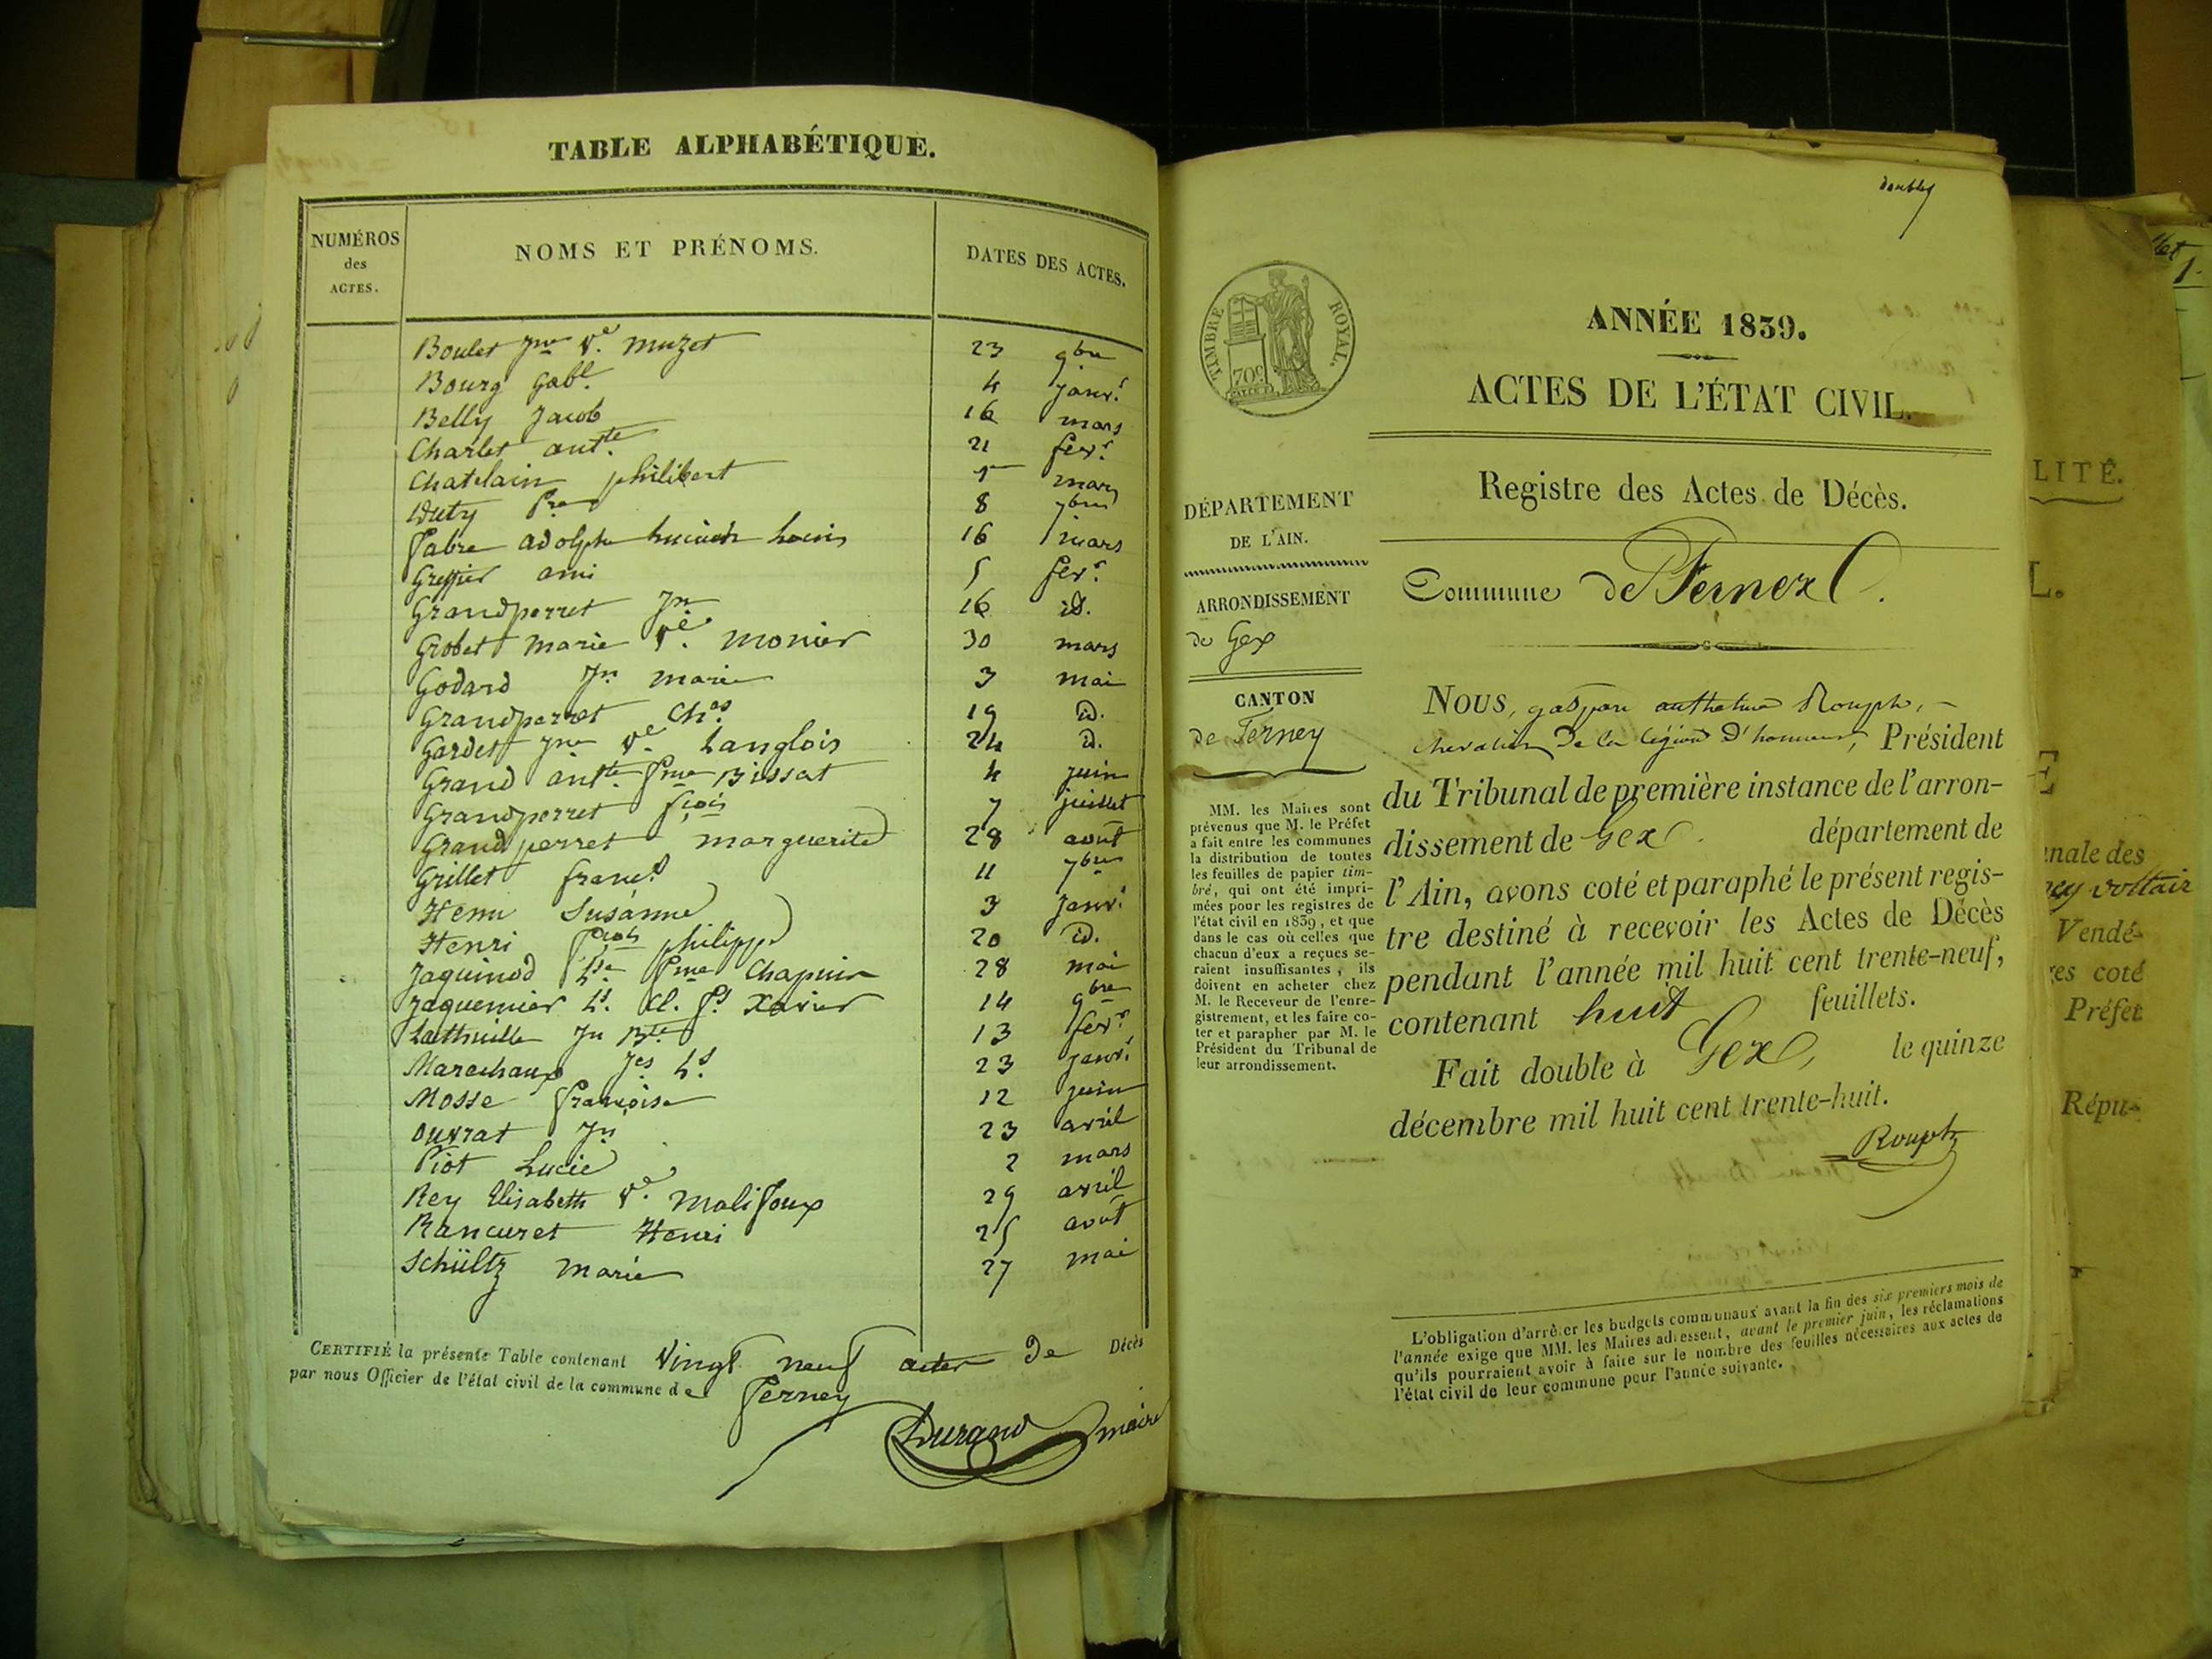 TABLE ALPHABÉTIQUE.
NUMÉROS
des
ACTES.
NOMS ET PRÉNOMS.
DATES DES ACTES.
Boulet Jne Ve. Muzet 23 9bre
Bourg Gabl. 4 janvr.
Belly Jacob 16 mars
Charlet antte. 21 fevr.
Chatelain philibert 1er mars
Duty Pre 8 7bre
Fabre adolphe Louis 16 mars
Greffier ami 5 fevr.
Grandperret Jn. 16 id.
Grobet Marie Ve. Monier 30 mars
Godard Jn marie 3 mai
Grandperret Chs. 19 id.
Gardet Jne Ve. Langlois 24 id.
Grand antte. fme Bissat 4 juin
Grandperret fçois 7 juillet
Grandperret marguerite 28 août
Grillet 11 7bre
Henri Susanne 3 Janvr.
Henri fçois philippe 20 id.
Jaquinod Lse fme Chapuis 28 mai
Jaquemier Ls. Cl. fs. Xavier 14 9bre
Lathuille Jn Bte 13 fevr.
Marechaux Jes Ls. 23 janvr.
Mosse françoise 12 juin
Ouvrat Jn 23 avril
Piot Lucie 2 mars
Rey Elisabeth Ve. Malifoux 29 avril
Rancuret Henri 25 août
Schültz Marie 27 mai
CERTIFIÉ la présente Table contenant Vingt neuf actes de Décès
par nous Officier de l'état civil de la commune de Ferney
Durand maire
doubles
TIMBRE ROYAL.
70c
ANNÉE 1839.
ACTES DE L'ÉTAT CIVIL.
Registre des Actes de Décès.
Commune de Ferney.
DÉPARTEMENT
DE L'AIN.
ARRONDISSEMENT
de Gex
CANTON
de Ferney
MM. les Maires sont
prévenus que M. le Préfet
a fait entre les communes
la distribution de toutes
les feuilles de papier tim-
bré, qui ont été impri-
mées pour les registres de
l'état civil en 1839, et que
dans le cas où celles que
chacun d'eux a reçues se-
raient insuffisantes, ils
doivent en acheter chez
M. le Receveur de l'enre-
gistrement, et les faire co-
ter et parapher par M. le
Président du Tribunal de
leur arrondissement.
NOUS, gaspar anthelme Rouph,
chevalier de la légion d'honneur, Président
du Tribunal de première instance de l'arron-
dissement de Gex département de
l'Ain, avons coté et paraphé le présent regis-
tre destiné à recevoir les Actes de Décès
pendant l'année mil huit cent trente-neuf,
contenant huit feuillets.
Fait double à Gex, le quinze
décembre mil huit cent trente-huit.
Rouph
L'obligation d'arrêter les budgets communaux avant la fin des six premiers mois de
l'année exige que MM. les Maires adressent, avant le premier juin, les réclamations
qu'ils pourraient avoir à faire sur le nombre des feuilles nécessaires aux actes de
l'état civil de leur commune pour l'année suivante.
1
LITÉ.
L.
E
nale des
ey voltair
Vendé-
es coté
Préfet
Répu-